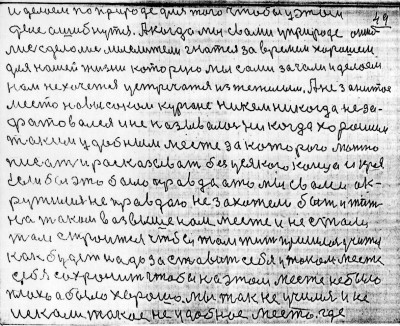 и делаем по природе для того чтобы у этом
49
деле ошибнутся. А когда мы с вами у природе
мы сделаем мыслители гнатся за время хорошем
для нашей жизни которую мы сами зачали и делаем
нам не хочется устречатся из тяжелим. А не занятое
место на высоком кургане никем никогда не за-
фатовался и не назывался никогда хорошим
таким удобным месте за которого можно
писать и рассказовать без усякого конца и края
Если бы это было правда то мы с вами ок-
ружился неправдою не захотели быть и жить
на таком возвышенном месте и не стали
там строится чтобы там жить пришлося учится
как будет надо заставать себя у таком месте
себя сохронить чтобы на этом месте не было
плохо а было хорошо. мы так не училися и не
искали такое не удобное место. где